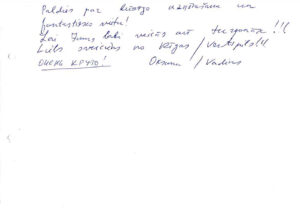 Paldies par lielisko uzņemšanu un
fantastisko vietu!
Lai Jums labi veicas arī turpmāk!!!
Liels sveiciens no Rīgas / Ventspils!!!
ОЧЕНЬ КРУТО! Oksana / Vadims